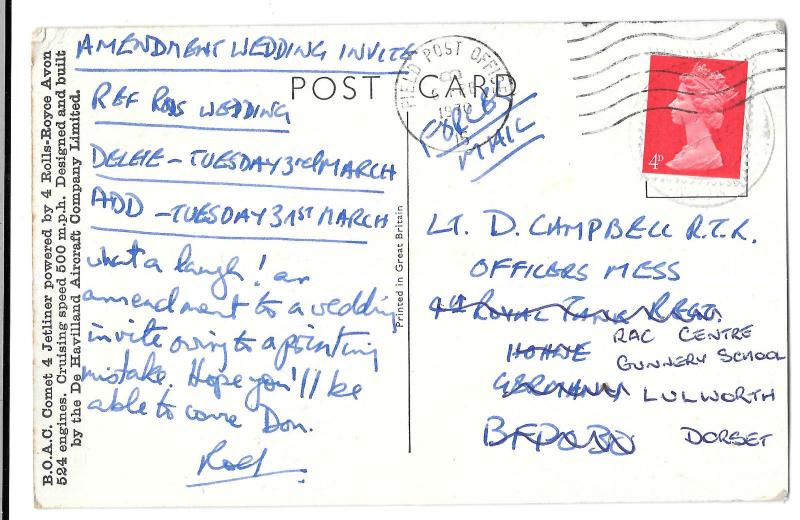 B.O.A.C. Comet 4 Jetliner powered by 4 Rolls-Royce Avon
524 engines. Cruising speed 500 m.p.h. Designed and built
by the De Havilland Aircraft Company Limited.
AMENDMENT WEDDING INVITE
REF ROSS WEDDING
DELETE - TUESDAY 3RD MARCH
ADD - TUESDAY 31ST MARCH
What a laugh! an
amendment to a wedding
invite owing to a printing
mistake. Hope you'll be
able to come Don.
POST CARD
FIELD POST OFFICE
1970
FORCES
MAIL
4D
Printed in Great Britain
LT. D. CAMPBELL R.T.R.
OFFICERS MESS
4TH ROYAL TANK REGT
HOHNE
RAC CENTRE
GUNNERY SCHOOL
GERMANY
LULWORTH
DORSET